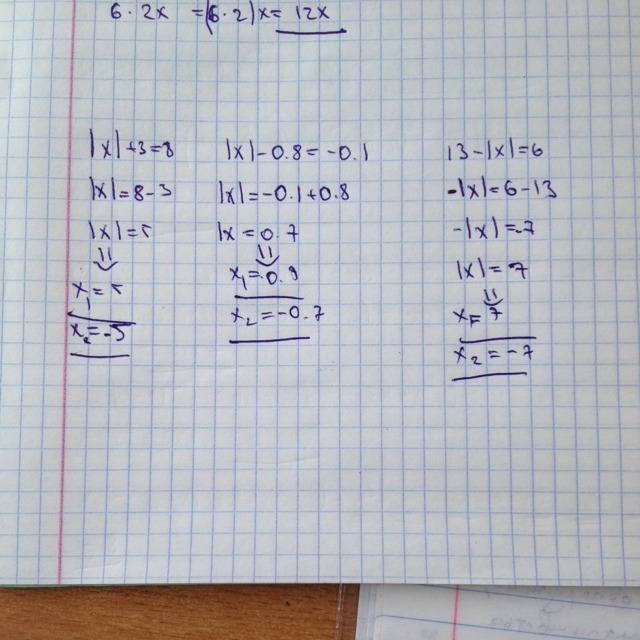 6 · 2x = (6 · 2)x = 12x
|x| + 3 = 8
|x| = 8 - 3
|x| = 5
⇓
x₁ = 5
x₂ = -5
|x| - 0.8 = -0.1
|x| = -0.1 + 0.8
|x = 0.7
⇓
x₁ = 0.9
x₂ = -0.7
13 - |x| = 6
-|x| = 6 - 13
-|x| = -7
|x| = 7
⇓
x₁ = 7
x₂ = -7